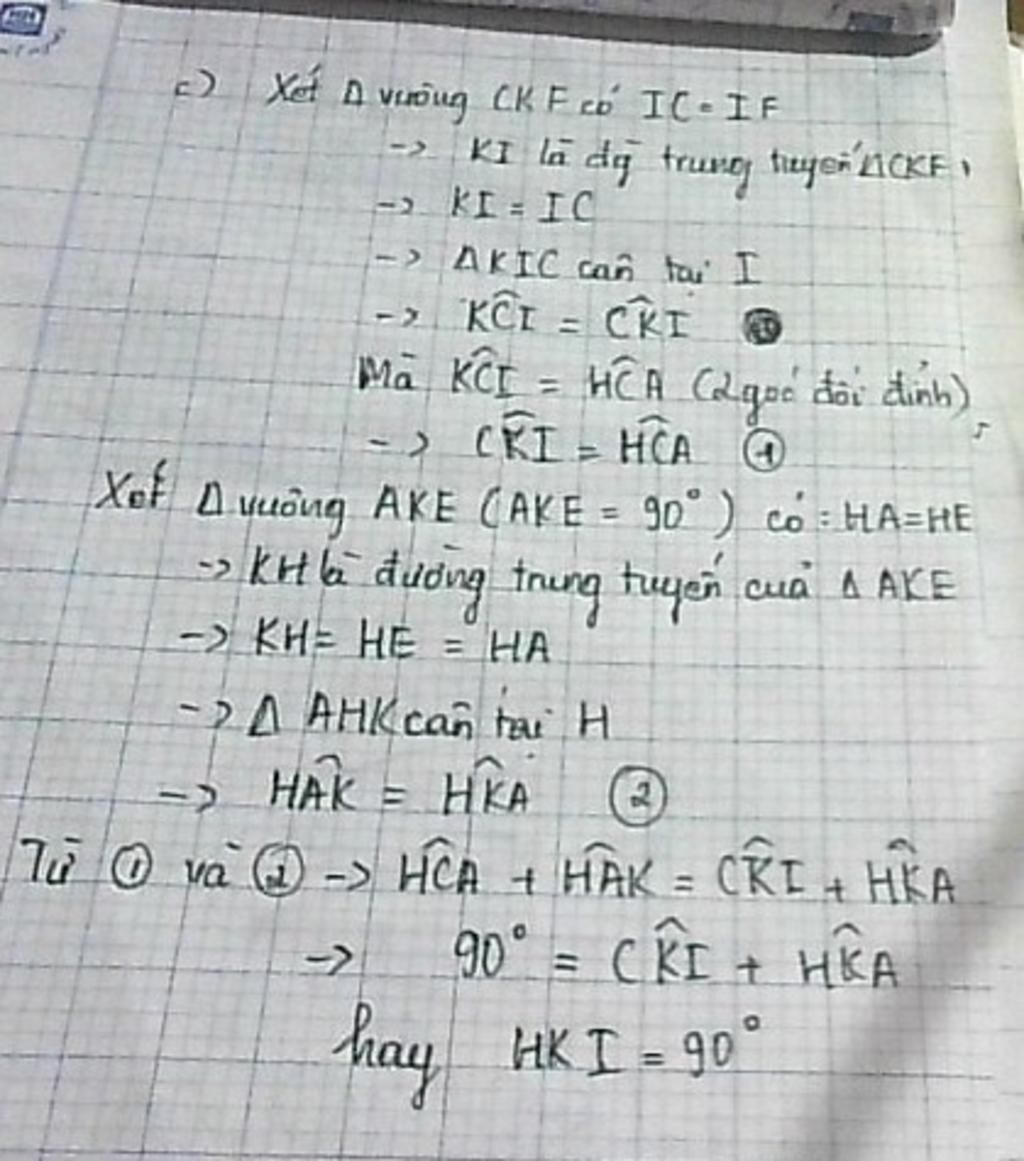 c) Xét Δ vuông CKF có IC = IF
-> KI là đg̀ trung tuyến ΔCKF
-> KI = IC
-> ΔKIC cân tại I
-> KĈI = CK̂I
Mà KĈI = HĈA (2 góc đối đỉnh)
-> CK̂I = HĈA ①
Xét Δ vuông AKE (AKE = 90°) có : HA = HE
-> KH là đường trung tuyến của Δ AKE
-> KH = HE = HA
-> Δ AHK cân tại H
-> HÂK = HK̂A ②
Từ ① và ② -> HĈA + HÂK = CK̂I + HK̂A
-> 90° = CK̂I + HK̂A
hay HKI = 90°